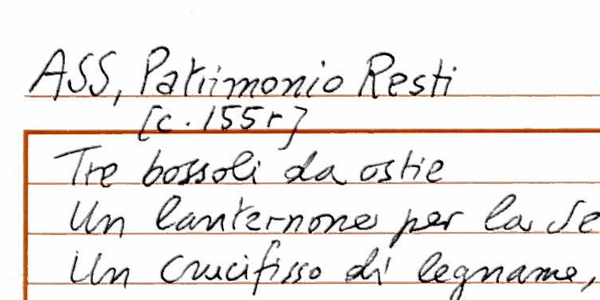 ASS, Patrimonio Resti
[c. 155r]
Tre bossoli da ostie
Un lanternone per la Se
Un Crucifisso di legname,